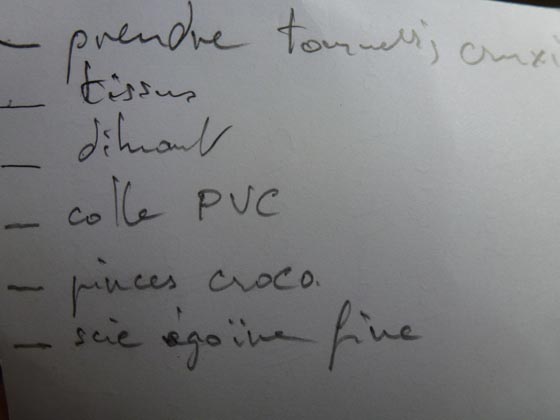 – prendre tournevis cruxi
– tissus
– diluant
– colle PVC
– pinces croco.
– scie égoïne fine